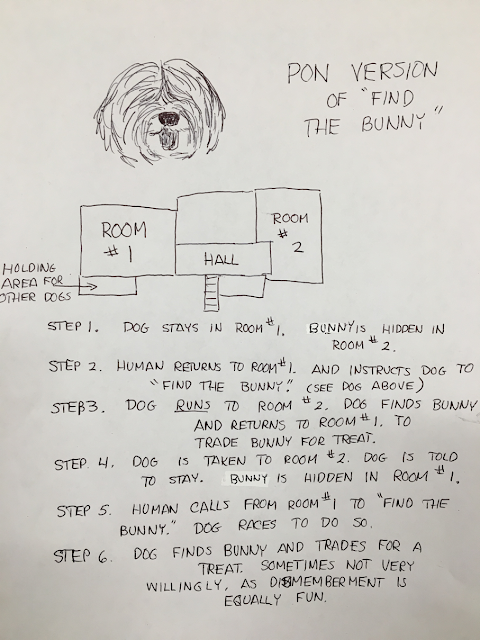 PON VERSION
OF "FIND
THE BUNNY"
ROOM
#1
ROOM
#
2
HALL
HOLDING
AREA FOR
OTHER DOGS
STEP 1. DOG STAYS IN ROOM #1. BUNNY IS HIDDEN IN
ROOM #2.
STEP 2. HUMAN RETURNS TO ROOM #1. AND INSTRUCTS DOG TO
"FIND THE BUNNY." (SEE DOG ABOVE)
STEP 3. DOG RUNS TO ROOM #2. DOG FINDS BUNNY
AND RETURNS TO ROOM #1. TO
TRADE BUNNY FOR TREAT.
STEP. 4. DOG IS TAKEN TO ROOM #2. DOG IS TOLD
TO STAY. BUNNY IS HIDDEN IN ROOM #1.
STEP 5. HUMAN CALLS FROM ROOM #1 TO "FIND THE
BUNNY." DOG RACES TO DO SO.
STEP 6. DOG FINDS BUNNY AND TRADES FOR A
TREAT. SOMETIMES NOT VERY
WILLINGLY, AS DISMEMBERMENT IS
EQUALLY FUN.